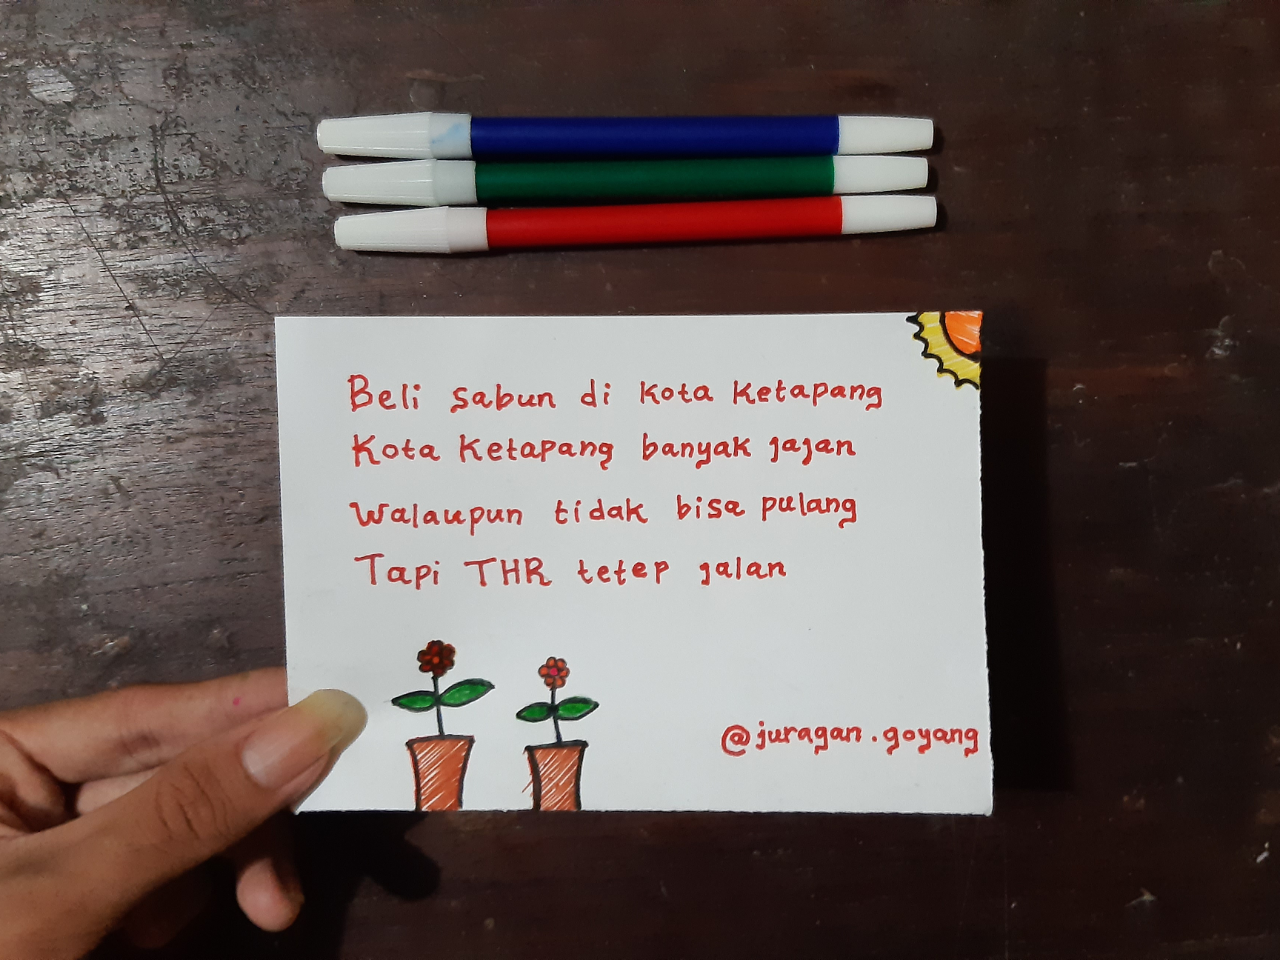 Beli sabun di kota Ketapang
Kota Ketapang banyak jajan
Walaupun tidak bisa pulang
Tapi THR tetep jalan
@juragan.goyang